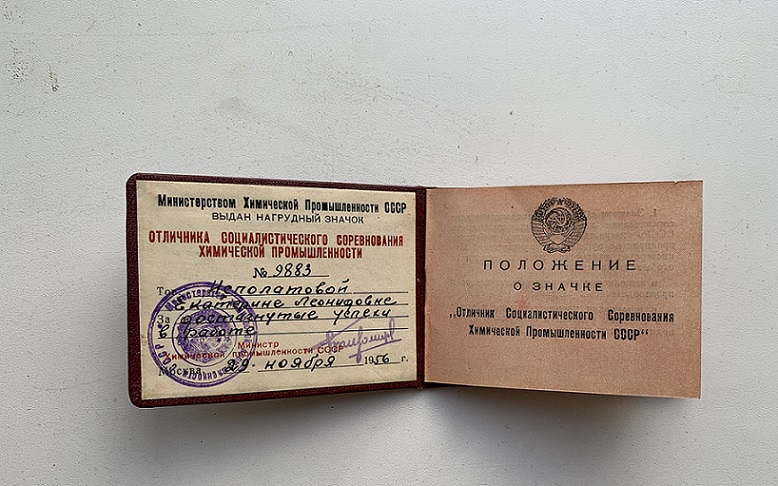 Министерством Химической Промышленности СССР
ВЫДАН НАГРУДНЫЙ ЗНАЧОК
ОТЛИЧНИКА СОЦИАЛИСТИЧЕСКОГО СОРЕВНОВАНИЯ
ХИМИЧЕСКОЙ ПРОМЫШЛЕННОСТИ
№ 9883
Тов. Исполатовой
Екатерине Леонидовне
За достигнутые успехи
в работе
Министр
Химической промышленности СССР
Москва 29. ноября 1956 г.
ПОЛОЖЕНИЕ
О ЗНАЧКЕ
„Отличник Социалистического Соревнования
Химической Промышленности СССР“